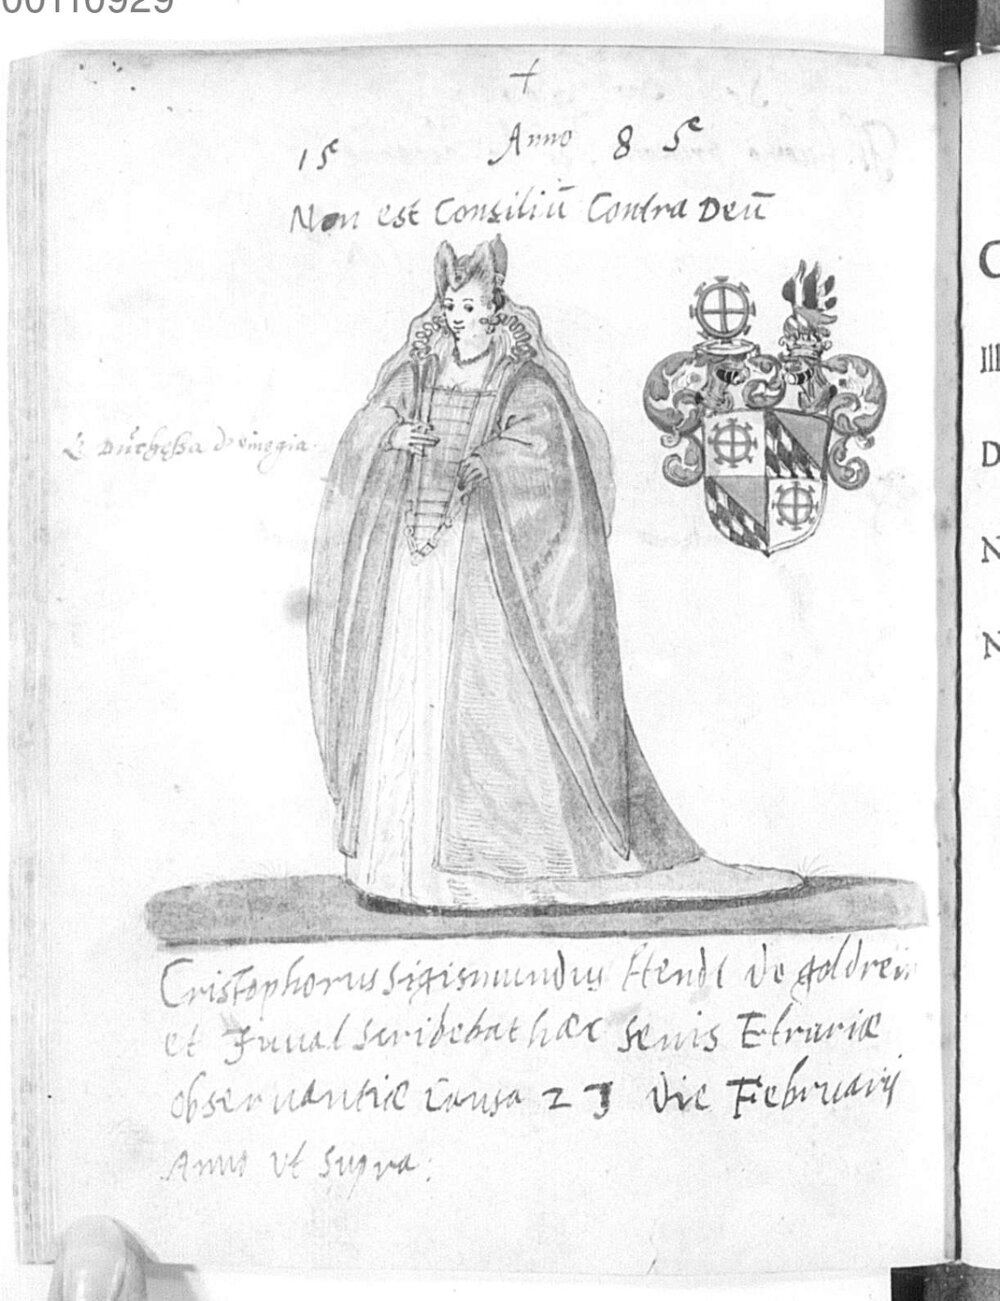 00110929
†
15 Anno 85
Non est Consiliū Contra Deū
Duchessa
Cristophorus Sigismundus Hendl de goldrein
et Juual scribebat hæc Senis Etruriæ
observantiæ causa 23 die Februarij
Anno vt supra:
C
Ill
D
N
N